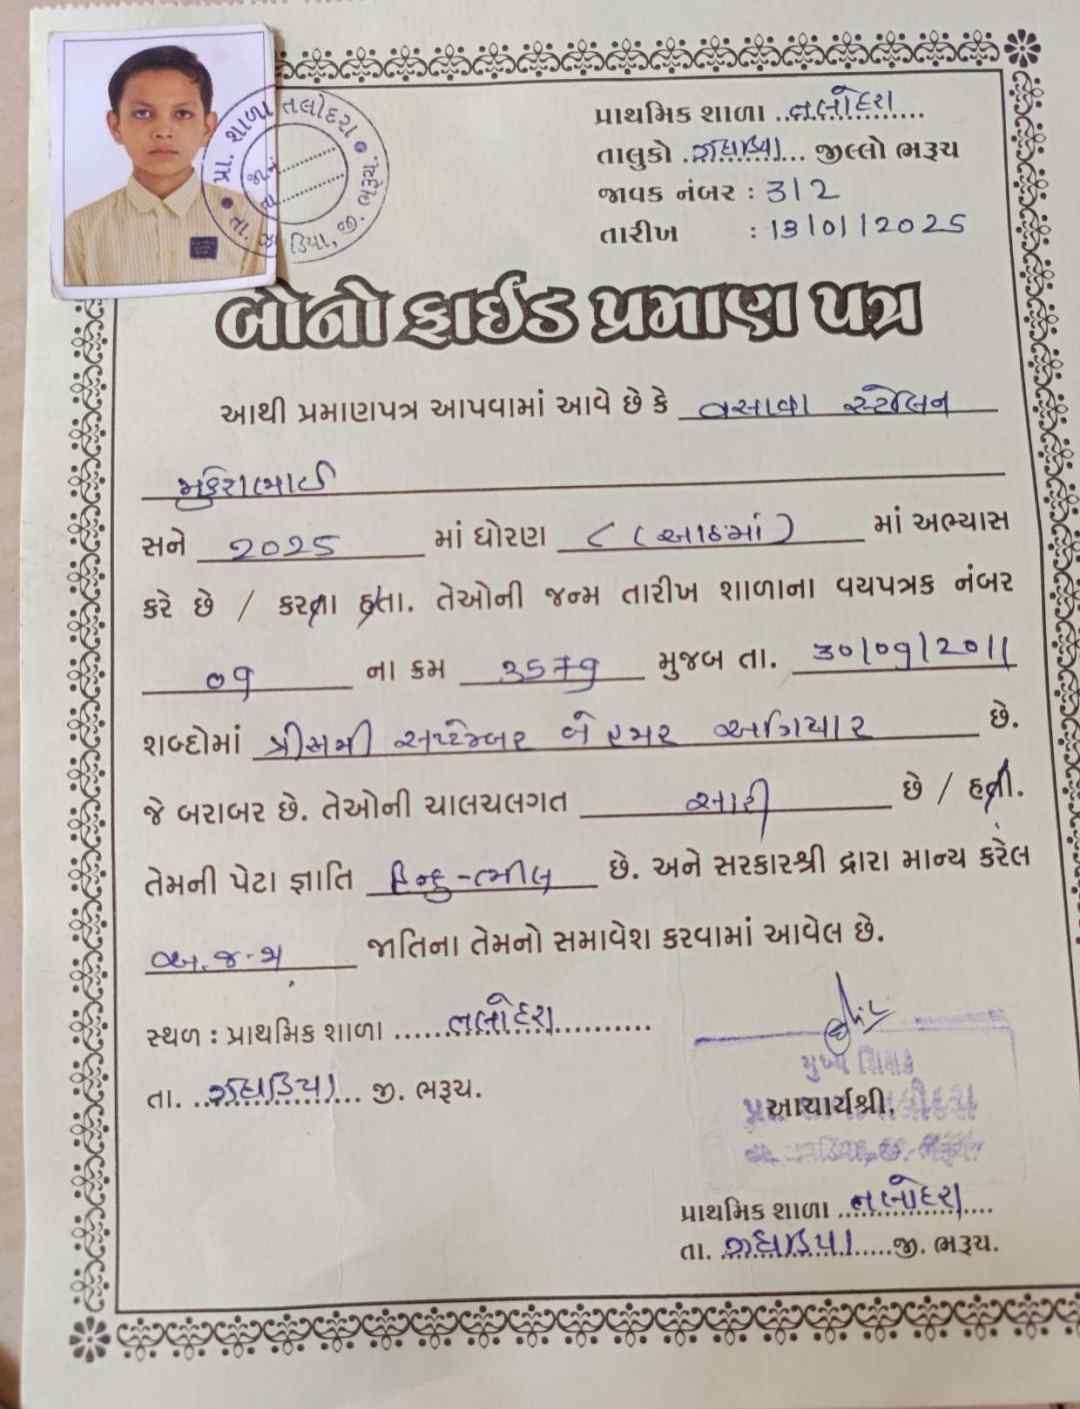 પ્રા. શાળા તલોદરા
જા.નં.
તા.
પ્રાથમિક શાળા ..તલોદરા....
તાલુકો .ઝઘડિયા... જીલ્લો ભરૂચ
જાવક નંબર : 312
તારીખ : 13/01/2025
બોનોફાઈડ પ્રમાણ પત્ર
આથી પ્રમાણપત્ર આપવામાં આવે છે કે વસાવા સ્ટેલિન
મુકેશભાઈ
સને 2025 માં ધોરણ ૮ (આઠમાં) માં અભ્યાસ
કરે છે / કરતા હતા. તેઓની જન્મ તારીખ શાળાના વયપત્રક નંબર
09 ના ક્રમ 3579 મુજબ તા. 30/09/2011
શબ્દોમાં ત્રીસમી સપ્ટેમ્બર બે હજાર અગિયાર છે.
જે બરાબર છે. તેઓની ચાલચલગત સારી છે / હતી.
તેમની પેટા જ્ઞાતિ હિન્દુ-ભીલ છે. અને સરકારશ્રી દ્વારા માન્ય કરેલ
અ.જ.જા જાતિના તેમનો સમાવેશ કરવામાં આવેલ છે.
સ્થળ : પ્રાથમિક શાળા ......તલોદરા...........
તા. ..ઝઘડિયા... જી. ભરૂચ.
મુખ્ય શિક્ષક
આચાર્યશ્રી,
પ્રાથમિક શાળા ..તલોદરા....
તા. .ઝઘડિયા.....જી. ભરૂચ.